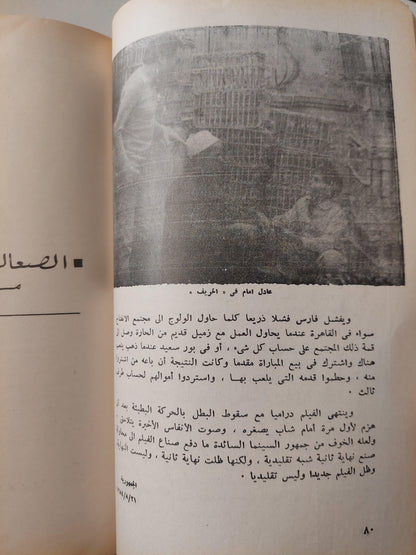 ■ الصعاليك
عادل امام في « الحريف »
ويفشل فارس فشلا ذريعا كلما حاول الولوج الى مجتمع الانفتاح
سواء فى القاهرة عندما يحاول العمل مع زميل قديم من الحارة وصل الى
قمة ذلك المجتمع على حساب كل شىء ، أو فى بور سعيد عندما ذهب
هناك واشترك فى بيع المباراة مقدما وكانت النتيجة أن باعه من اشتراه
منه ، وحطموا قدمه التى يلعب بهـا ، واستردوا أموالهم لحساب طرف
ثالث .
وينتهى الفيلم دراميا مع سقوط البطل بالحركة البطيئة بعد أن
هزم لأول مرة أمام شاب يصغره ، وصوت الأنفاس الأخيرة يتلاحق ،
ولعله الخوف من جمهور السينما السائدة ما دفع صناع الفيلم الى
صنع نهاية ثانية شبه تقليدية ، ولكنها ظلت نهاية ثانية ، وليست النهاية
وظل الفيلم جديدا وليس تقليديا .
الجمهورية
٨٠